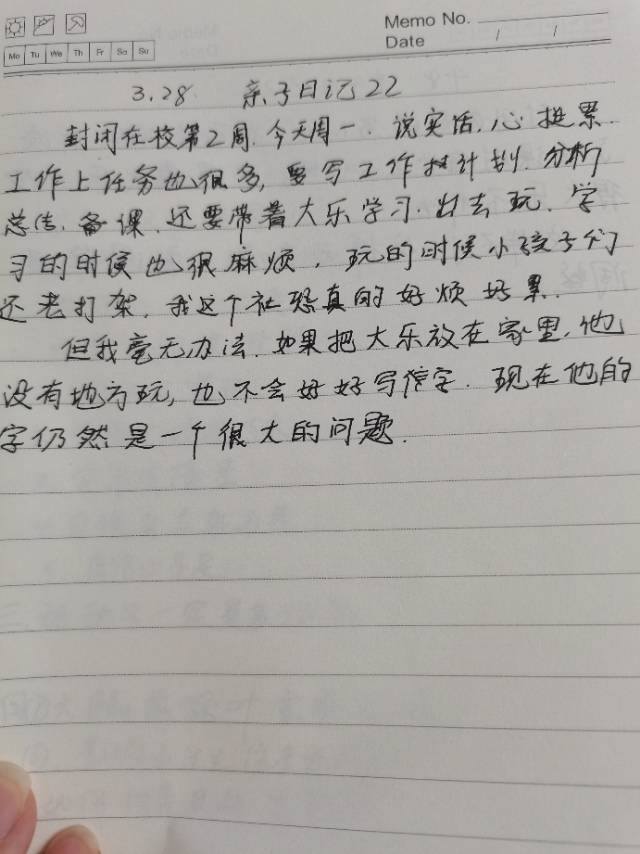 Memo No.
Mo Tu We Th Fr Sa Su
Date / /
3.28 亲子日记22
封闭在校第2周.今天周一.说实话,心挺累.
工作上任务也很多,要写工作计划.分析
总结.备课.还要带着大乐学习.出去玩.学
习的时候也很麻烦,玩的时候小孩子们
还老打架.我这个社恐真的好烦好累.
但我毫无办法.如果把大乐放在家里,他
没有地方玩,也不会好好写字.现在他的
字仍然是一个很大的问题.